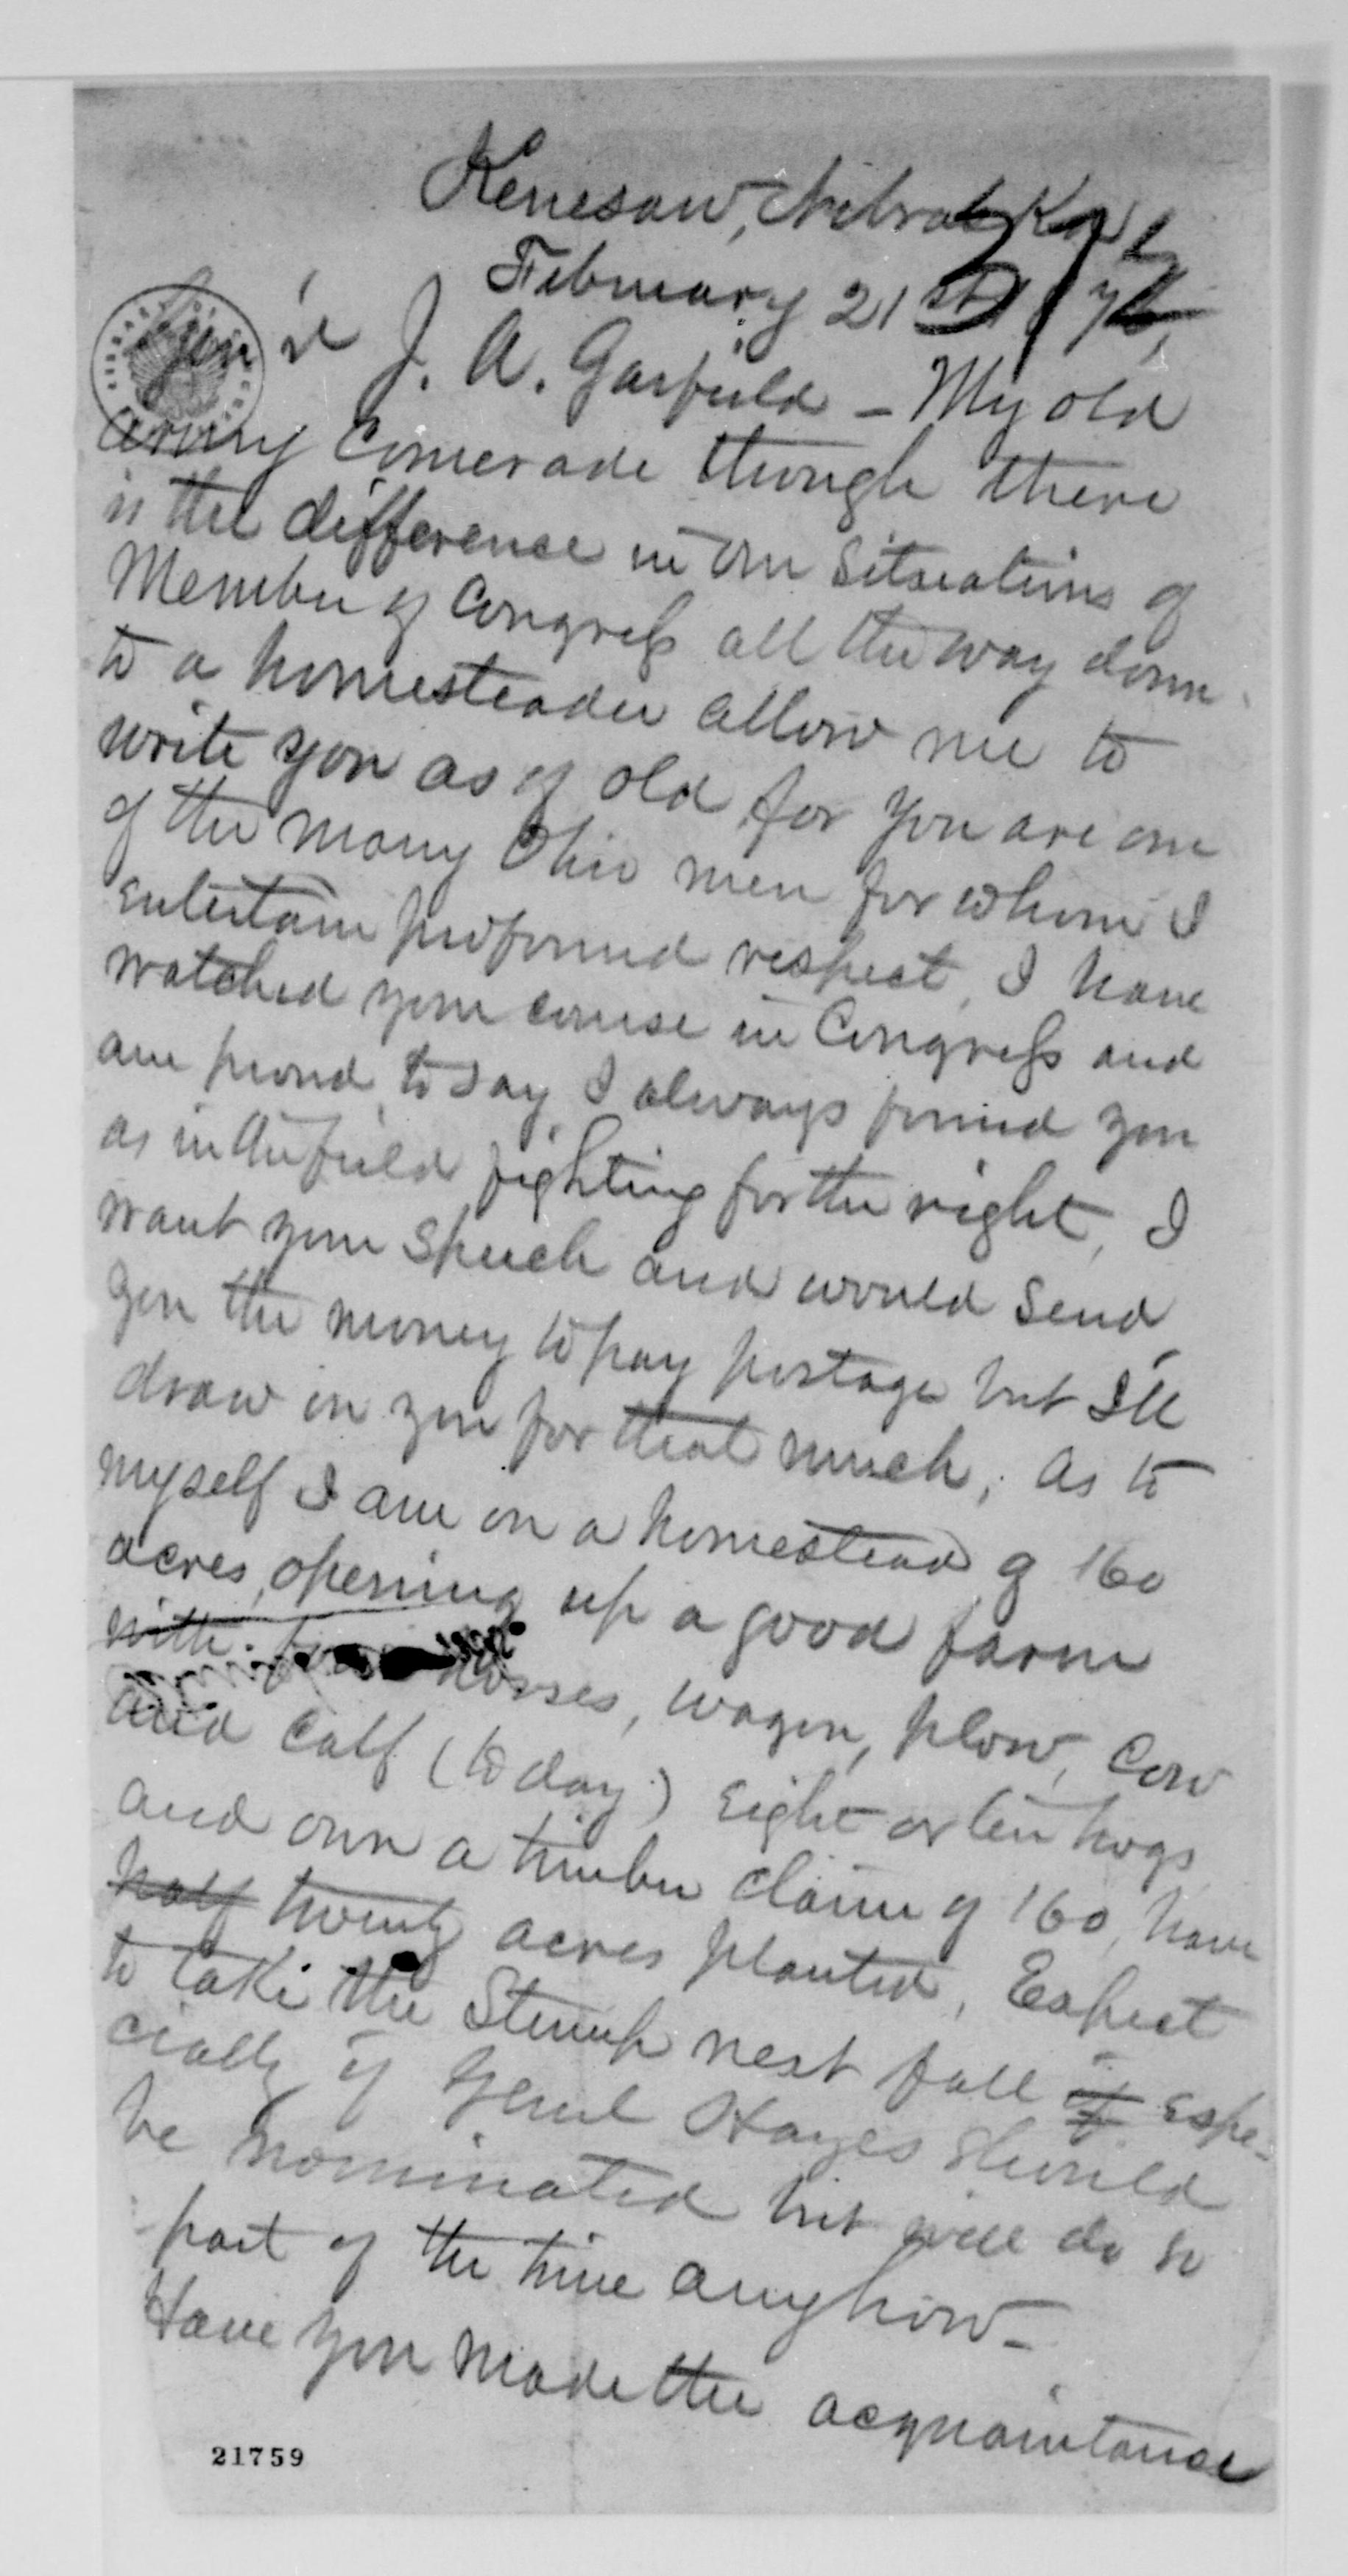 Kenesaw, Nebraska
February 21st 1876,
Gen'l J. A. Garfield – My old
army Comerade though there
is the difference in our Situations of
Member of Congress all the way down
to a homesteader allow me to
write you as of old, for you are one
of the many Ohio men for whom I
entertain profound respect, I have
watched your course in Congress and
am proud to say, I always found you
as in the field fighting for the right, I
want your Speech and would send
you the money to pay postage but I'll
draw on you for that much, as to
myself I am on a homestead of 160
acres, opening up a good farm
with horses, wagon, plow, Cow
and Calf (to day) eight or ten hogs
and own a timber claim of 160, have
half twenty acres planted, Expect
to take the Stump next fall if espe-
cially if Genl Hayes should
be nominated but will do so
part of the time anyhow –
Have you made the acquaintance
21759